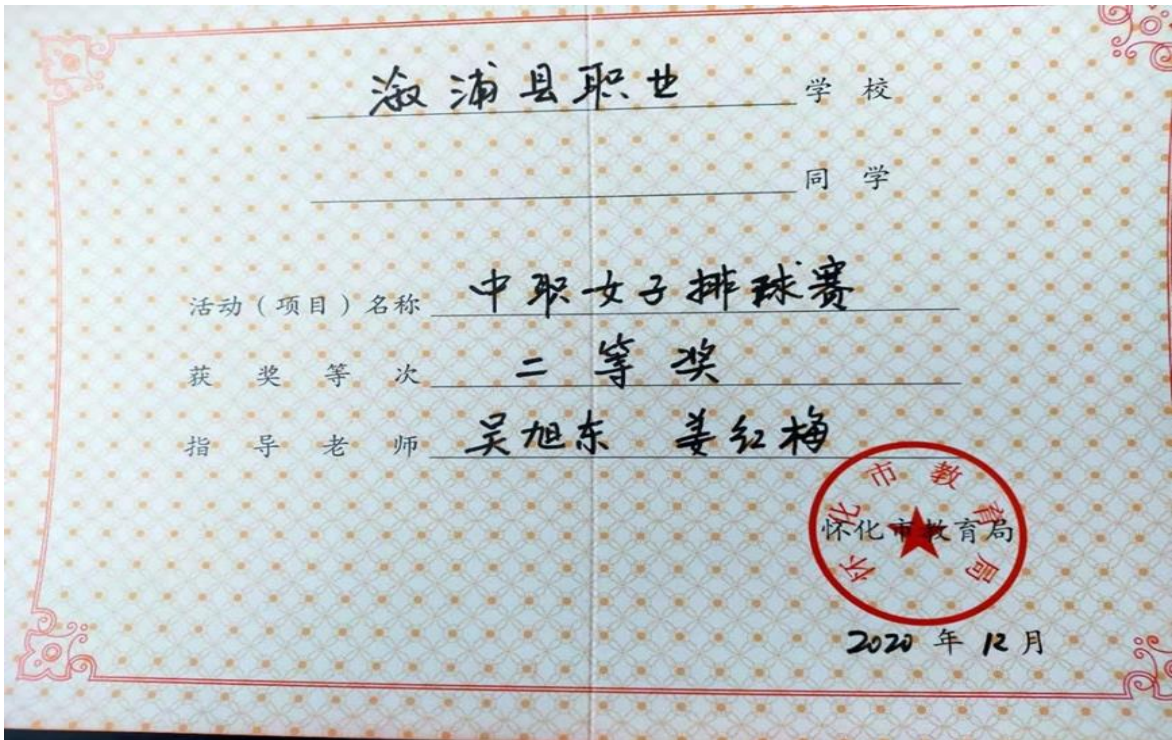 溆浦县职业学校
同学
活动(项目)名称 中职女子排球赛
获奖等次 二等奖
指导老师 吴旭东 姜红梅
怀化市教育局
怀化市教育局
2020年12月